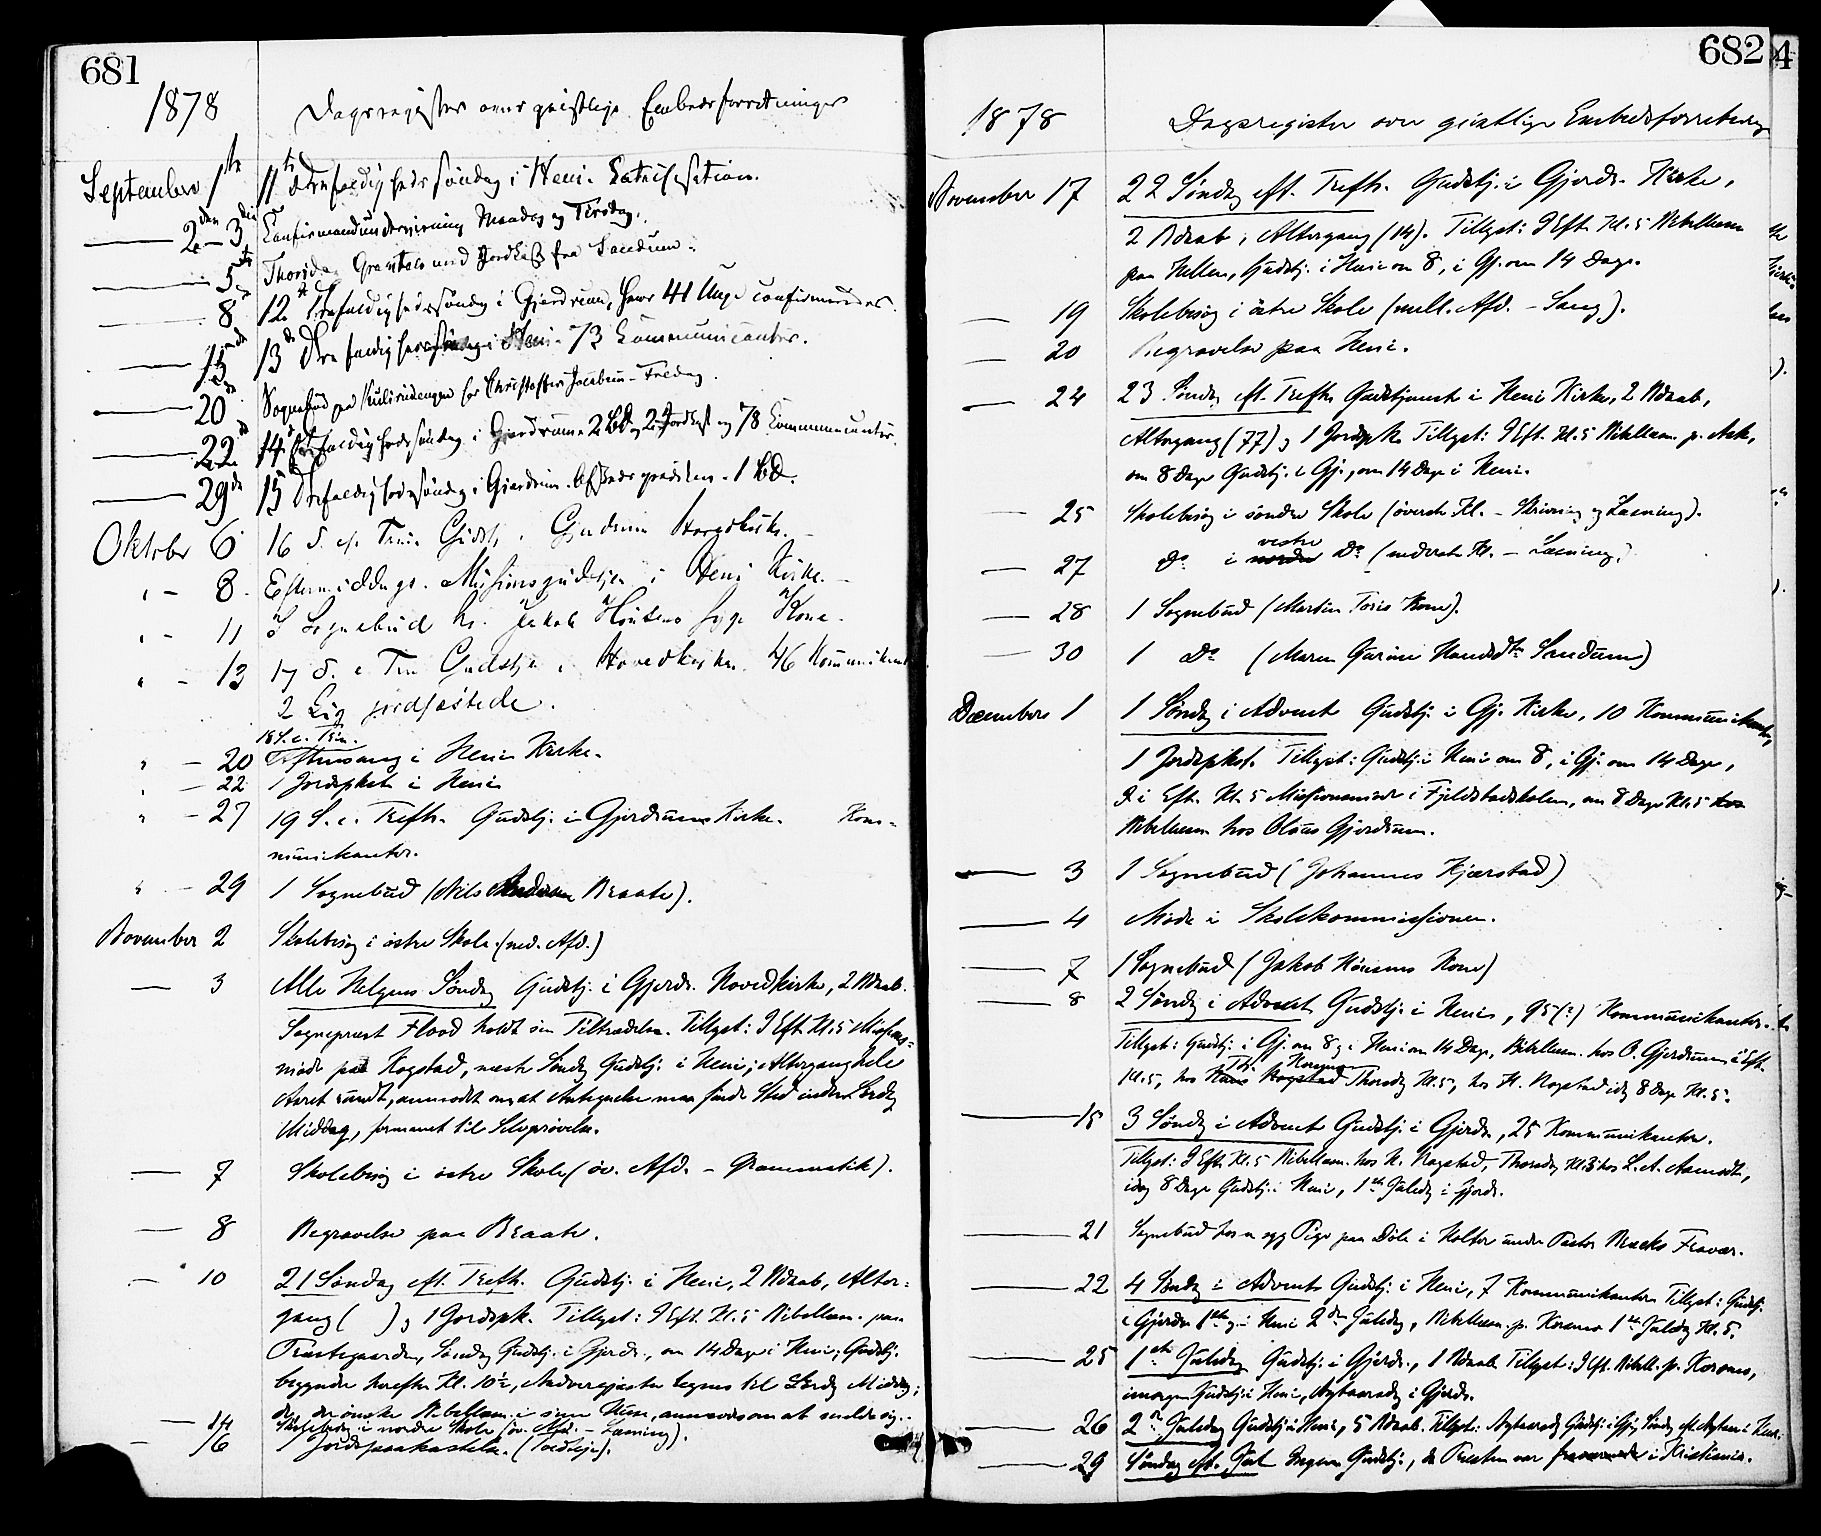 681
1878 Dagsregister over geistlige Embedsforretninger
September 1ste 11te Trefoldighedssøndag i Heni. Katechisation.
2den-3die Confirmandundervisning Mandag og Tirsdag.
5te Thorsdag Gravtale med Jordkast fra Sandum.
8 12te Trefoldighedssøndag i Gjerdrum, hvor 41 Unge confirmeredes.
15 13de Trefoldighedssøndag i Heni. 73 Communicanter.
20 Sognebud paa for Christoffer Jacobsen - Fredag.
22 14de Trefoldighedssøndag i Gjerdrum. 2 Bd og 2 Jordkast og 78 Communicanter.
29de 15 Trefoldighedssøndag i Gjerdrum. Afskedsprædiken. 1 Bd.
Oktober 6 16 S. e. Trin. Gudstj. i Gjerdrum Hovedkirke.
" - 8. Eftermiddags. Missionsgudstjen. i Heni Kirke.
" - 11 I Sognebud hs. Jakob syge Kone.
" - 13 17 S. e. Trin Gudstje i Hovedkirken. 46 Kommunikant
2 Lig jordfæstede.
18 S. e. Trin.
" - 20 Aftensang i Heni Kirke.
" - 22 1 Jordspkst i Heni
" - 27 19 S. e. Trefh. Gudstj. i Gjerdrums Kirke. Kom-
munikanter.
" - 29 1 Sognebud (Nils Braate).
November 2 Skolebesøg i østre Skole. (ned. Afd.)
3 Alle Helgens Søndag Gudstj. i Gjerdr. Hovedkirke, 2 Bdaab.
Sogneprest Flood holdt sin Tiltrædelse. Tillyst: I Eft. Kl. 5 Missions-
møde paa Kogstad, næste Søndag Gudstj. i Heni; Altergang hele
Aaret rundt, anmodet om, at Antegnelse maa finde Sted inden Lørdag
Middag, formanet til Selvprøvelse.
7 Skolebesøg i østre Skole (øv. Afd. - Grammatik).
8 Begravelse paa Braate.
10 21 Søndag eft. Trefh. Gudstj. i Heni, 2 Bdaab, Alter-
gang ( ) og 1 Jordspk. Tillyst: I Eft. Kl. 5 Bibellæsn. paa
Præstegaarden, Søndag Gudstj. i Gjerdr., om 14 Dage i Heni; Gudstj.
begynder herefter Kl. 10½, Nadvergjester tegnes til Lørdag Middag;
de, der ønske Bibellæsn. i sine Huse, anmodes om at melde sig.
14 Skolebesøg i nordre Skole (øv. Afd. - Læsning).
16 1 Jordspaakastelse. (Torshaj).
682
1878 Dagsregister over geistlige Embedsforretning
November 17 22 Søndag eft. Trefh. Gudstj. i Gjerdr. Kirke,
2 Bdaab, Altergang (14). Tillyst: I Eft. Kl. 5 Bibellæsn
paa Hellen, Gudstj. i Heni om 8, i Gj. om 14 Dage.
19 Skolebesøg i østre Skole (mell. Afd. - Sang).
20 Begravelse paa Heni.
24 23 Søndag eft. Trefh. Gudstjeneste i Heni Kirke, 2 Bdaab,
Altergang (77) og 1 Jordspk. Tillyst: I Eft. Kl. 5 Bibellæsn. p. Ask,
om 8 Dage Gudstj. i Gj., om 14 Dage i Heni.
25 Skolebesøg i søndre Skole (øverste Kl. - Skrivning og Læsning).
27 do i vestre do (nederste Kl. - Læsning)
28 1 Sognebud (Martin Toris Kone).
30 1 do (Maren Gurine Hansdtr Sandum)
December 1 1 Søndag i Advent Gudstj. i Gj. Kirke, 10 Kommunikanter,
1 Jordspkst. Tillyst: Gudstj. i Heni om 8, i Gj. om 14 Dage,
I Eft. Kl. 5 Missionsmøde i Fjeldstadskolen, om 8 Dage Kl. 5
Bibellæsn hos Olaus Gjerdrum.
3 1 Sognebud (Johannes Kjærstad)
4 Møde i Skolekommissionen.
7 1 Sognebud (Jakob Kone)
8 2 Søndag i Advent Gudstj. i Heni, 95(?) Kommunikanter.
Tillyst: Gudstj. i Gj. om 8 og i Heni om 14 Dage, Bibellæsn. hos O. Gjerdrum i Eft.
Kl. 5, hos Thorsdag Kl. 5, hos H. Kogstad idag 8 Dage Kl. 5.
15 3 Søndag i Advent Gudstj. i Gjerdr., 25 Kommunikanter.
Tillyst: I Eft. Kl. 5 Bibellæsn. hos H. Kogstad, Thorsdag Kl. 3 hos L. A. Aamodt,
idag 8 Dage Gudstj. i Heni, 1ste Juledag i Gjerdr.
21 Sognebud hos en syg Pige paa Døli i Holter under Pastor Bracks Fravær.
22 4 Søndag i Advent Gudstj. i Heni, 7 Kommunikanter Tillyst: Gudstj.
i Gjerdr. 1ste og i Heni 2den Juledag, Bibellæsn. p. Koranes 1ste Juledag Kl. 5.
25 1ste Juledag Gudstj. i Gjerdr., 1 Bdaab. Tillyst: I Eft. Bibell. p. Koranes,
imorgen Gudstj. i Heni, Nytaarsdag i Gjerdr.
26 2n Juledag Gudstj. i Heni, 5 Bdaab. Tillyst: Nytaarsdag Gudstj. i Gj, Søndag eft. Nytaar i Heni.
29 Søndag eft. Jul Ingen Gudstj., da Presten var i Kristiania.